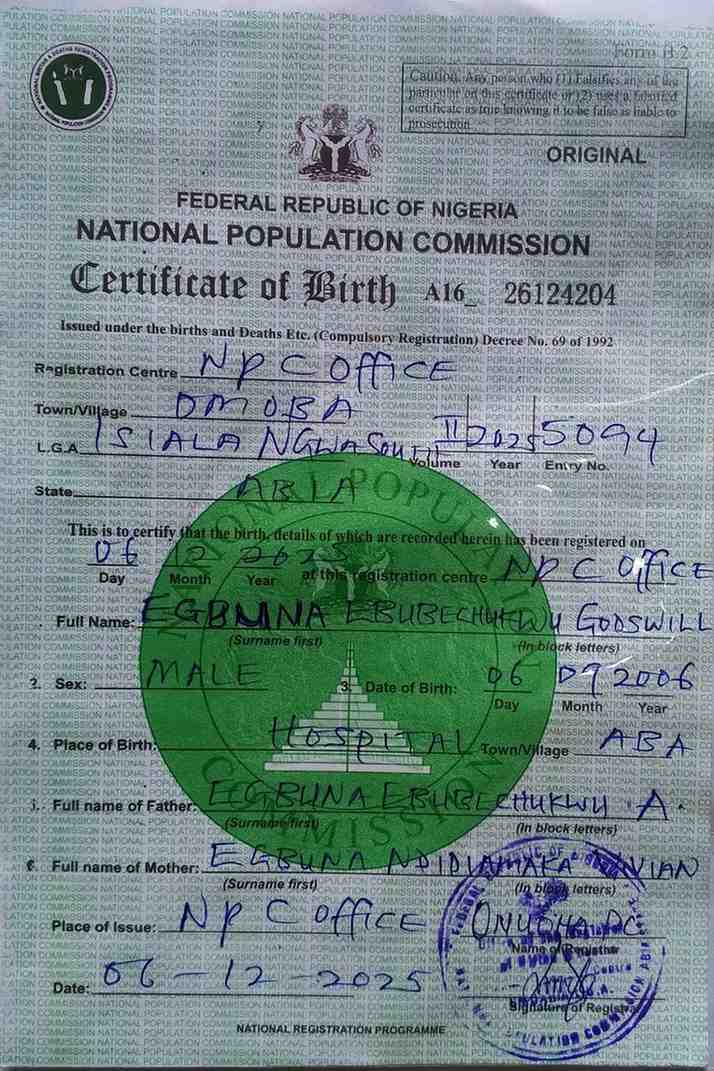 Form B 2
Caution: Any person who (1) Falsifies any of the
particular on this certificate or (2) uses a falsified
certificate as true knowing it to be false is liable to
prosecution
ORIGINAL
FEDERAL REPUBLIC OF NIGERIA
NATIONAL POPULATION COMMISSION
Certificate of Birth A16_ 26124204
Issued under the births and Deaths Etc. (Compulsory Registration) Decree No. 69 of 1992
Registration Centre NPC OFFICE
Town/Village OMOBA
L.G.A ISIALA NGWA South II 2025 5094
Volume Year Entry No.
State ABIA
This is to certify that the birth, details of which are recorded herein has been registered on
06 12 2025 at this registration centre NPC OFFICE
Day Month Year
Full Name: EGBUNA EBUBECHUKWU GODSWILL
(Surname first) (In block letters)
2. Sex: MALE 3. Date of Birth: 06 09 2006
Day Month Year
4. Place of Birth: HOSPITAL Town/Village ABA
Full name of Father: EGBUNA EBUBECHUKWU A.
(Surname first) (In block letters)
Full name of Mother: EGBUNA NDIDIAMAKA VIVIAN
(Surname first) (In block letters)
Place of Issue: NPC OFFICE
Name of Registrar
Date: 06-12-2025
Signature of Registrar
NATIONAL REGISTRATION PROGRAMME